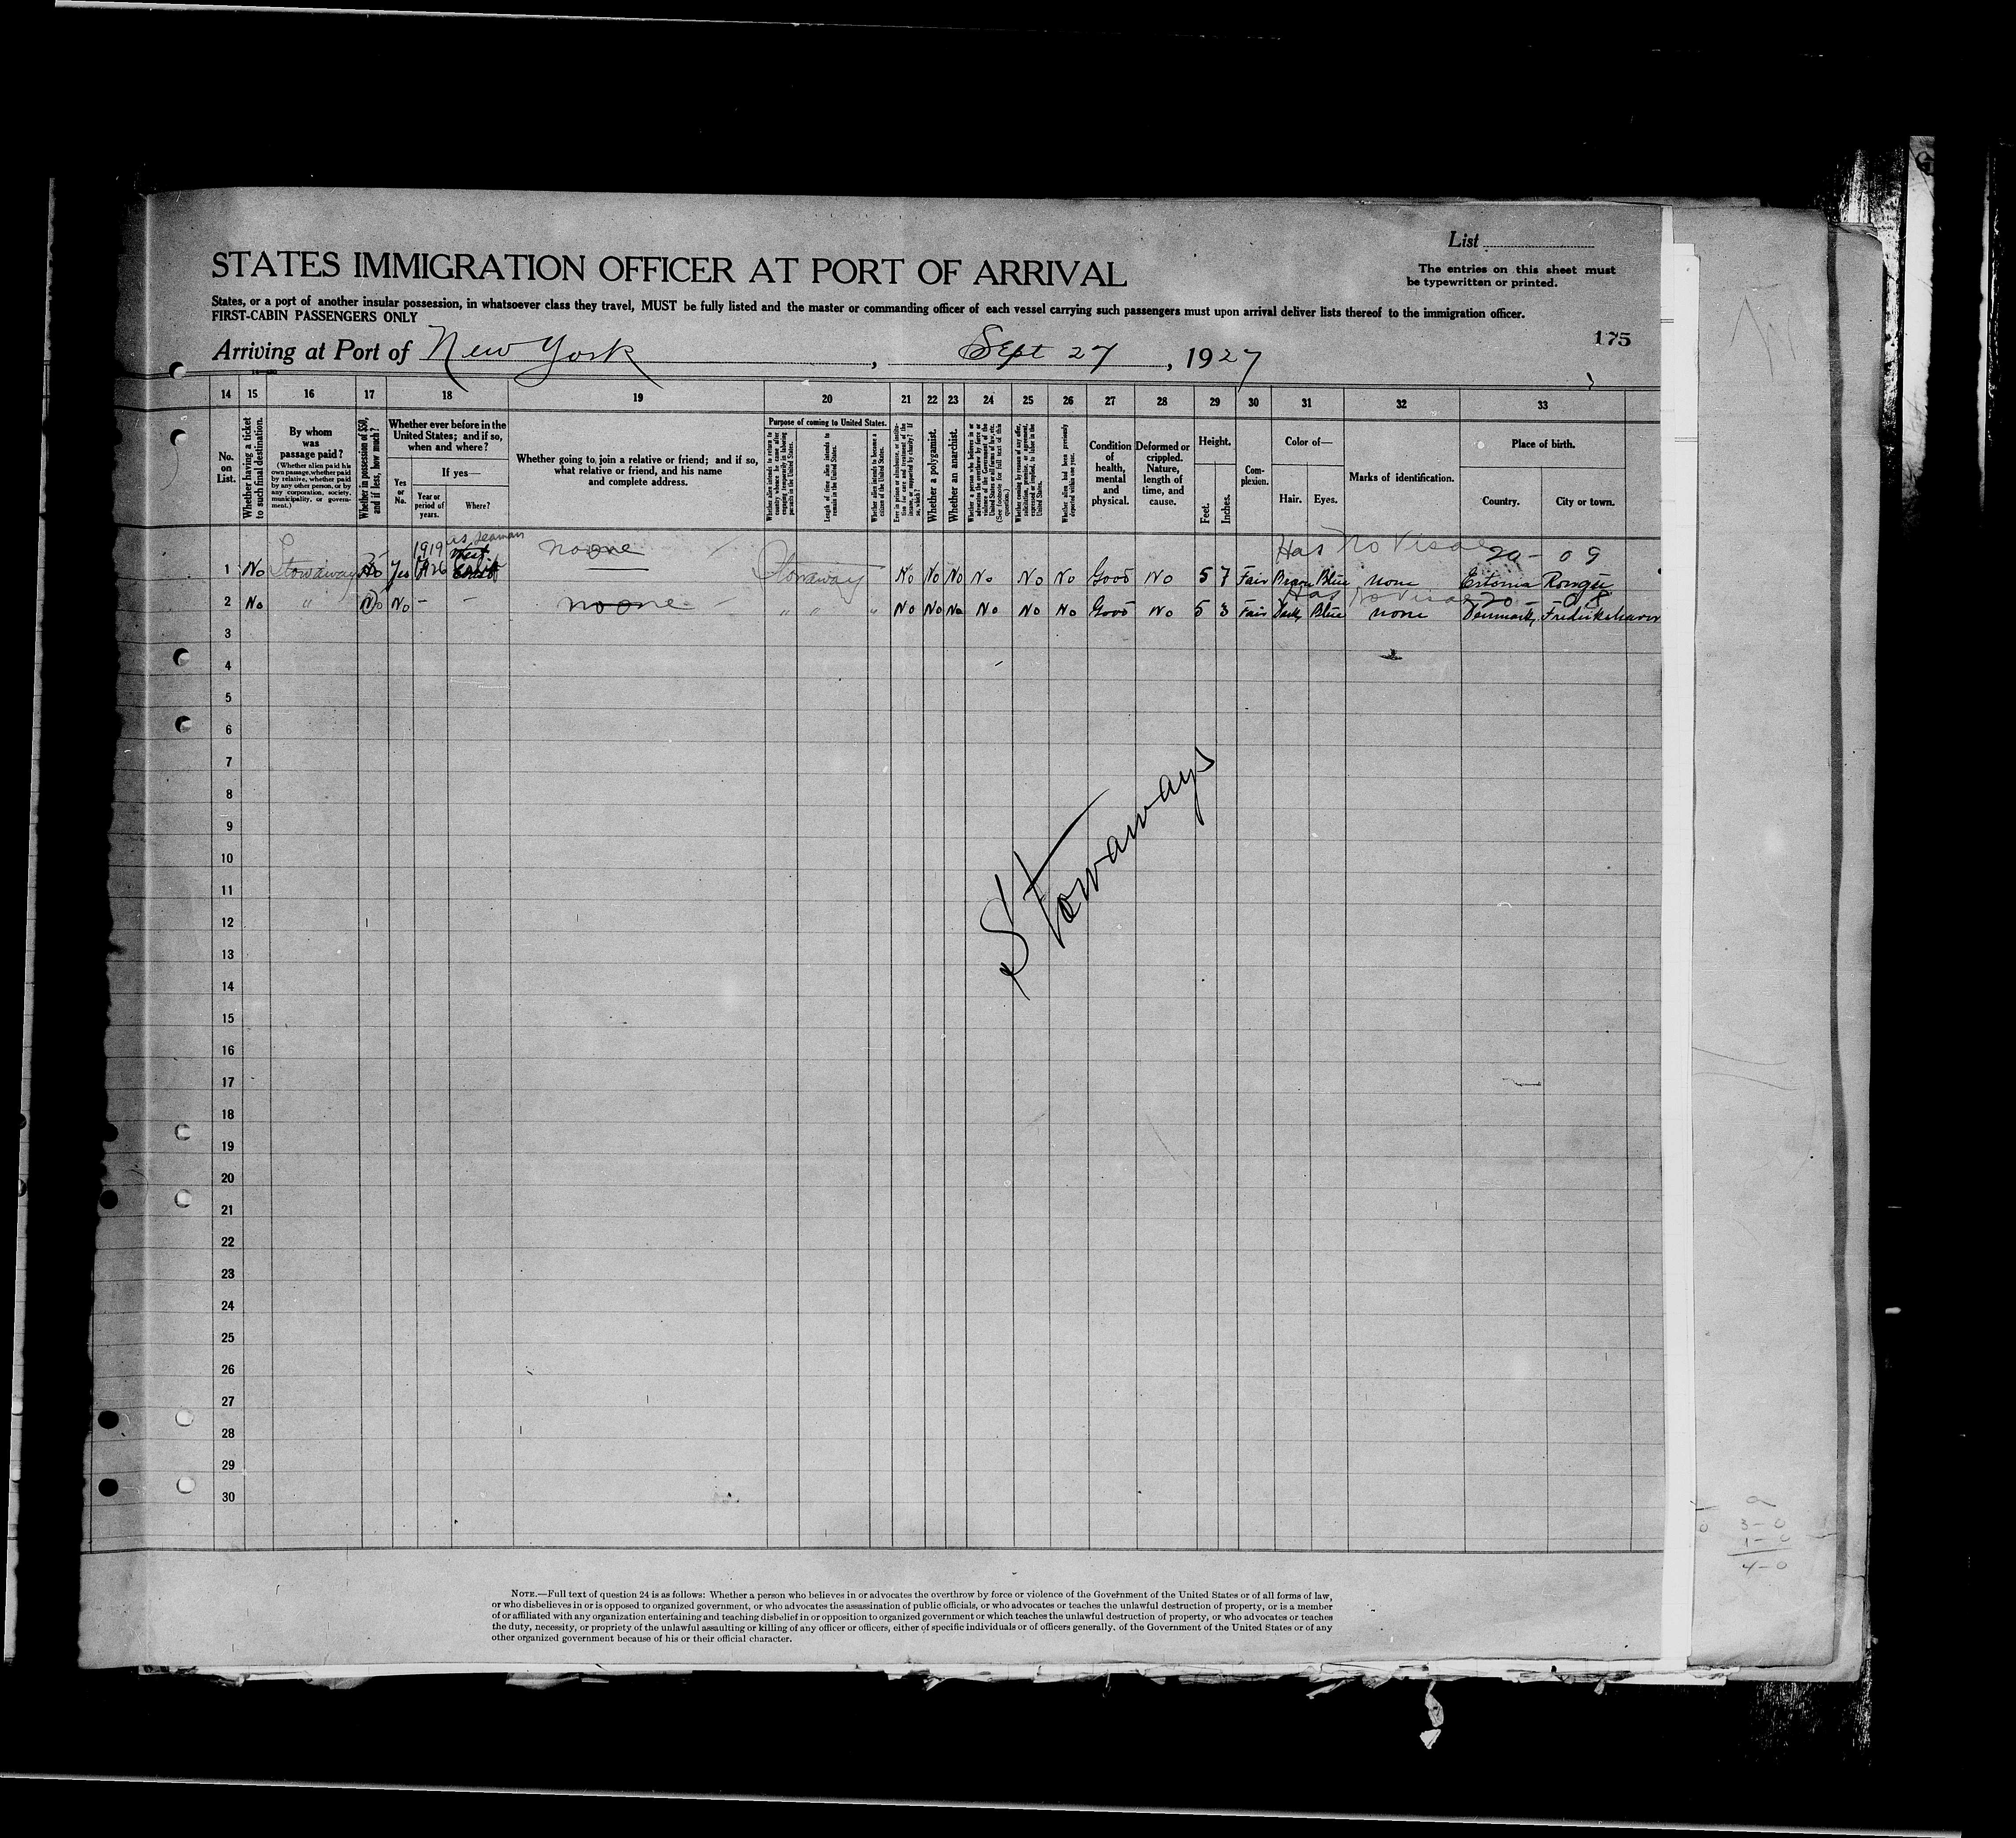 List
STATES IMMIGRATION OFFICER AT PORT OF ARRIVAL
The entries on this sheet must
be typewritten or printed.
States, or a port of another insular possession, in whatsoever class they travel, MUST be fully listed and the master or commanding officer of each vessel carrying such passengers must upon arrival deliver lists thereof to the immigration officer.
FIRST-CABIN PASSENGERS ONLY
175
Arriving at Port of New York, Sept 27, 1927
14 15 16 17 18 19 20 21 22 23 24 25 26 27 28 29 30 31 32 33
No. on List.
Whether having a ticket to such final destination.
By whom was passage paid?
(Whether alien paid his own passage, whether paid by relative, whether paid by any other person, or by any corporation, society, municipality, or government.)
Whether in possession of $50, and if less, how much?
Whether ever before in the United States; and if so, when and where?
Yes or No.
If yes—
Year or period of years.
Where?
Whether going to join a relative or friend; and if so, what relative or friend, and his name and complete address.
Purpose of coming to United States.
Whether alien intends to return to country whence he came after engaging temporarily in laboring pursuits in the United States.
Length of time alien intends to remain in the United States.
Whether alien intends to become a citizen of the United States.
Ever in prison or almshouse, or institution for care and treatment of the insane, or supported by charity? If so, which?
Whether a polygamist.
Whether an anarchist.
Whether a person who believes in or advocates the overthrow by force or violence of the Government of the United States or all forms of law, etc. (See footnote for full text of this question.)
Whether coming by reason of any offer, solicitation, promise, or agreement, expressed or implied, to labor in the United States.
Whether alien had been previously deported within one year.
Condition of health, mental and physical.
Deformed or crippled. Nature, length of time, and cause.
Height.
Feet.
Inches.
Complexion.
Color of—
Hair.
Eyes.
Marks of identification.
Place of birth.
Country.
City or town.
1919 as seaman
noone
Has no Visae 20 - 09
1 No Stowaway No Yes 1926 Stowaway No No No No No No Good No 5 7 Fair Brown Blue none Estonia
Has no Visae 20 - 08
2 No " No No - - noone " " " No No No No No No Good No 5 3 Fair Dark Blue none Denmark Frederikshavn
3
4
5
6
7
8
9
10
11
12
13
14
15
16
17
18
19
20
21
22
23
24
25
26
27
28
29
30
Stowaways
9
3-0
1-0
4-0
NOTE.—Full text of question 24 is as follows: Whether a person who believes in or advocates the overthrow by force or violence of the Government of the United States or of all forms of law,
or who disbelieves in or is opposed to organized government, or who advocates the assassination of public officials, or who advocates or teaches the unlawful destruction of property, or is a member
of or affiliated with any organization entertaining and teaching disbelief in or opposition to organized government or which teaches the unlawful destruction of property, or who advocates or teaches
the duty, necessity, or propriety of the unlawful assaulting or killing of any officer or officers, either of specific individuals or of officers generally, of the Government of the United States or of any
other organized government because of his or their official character.